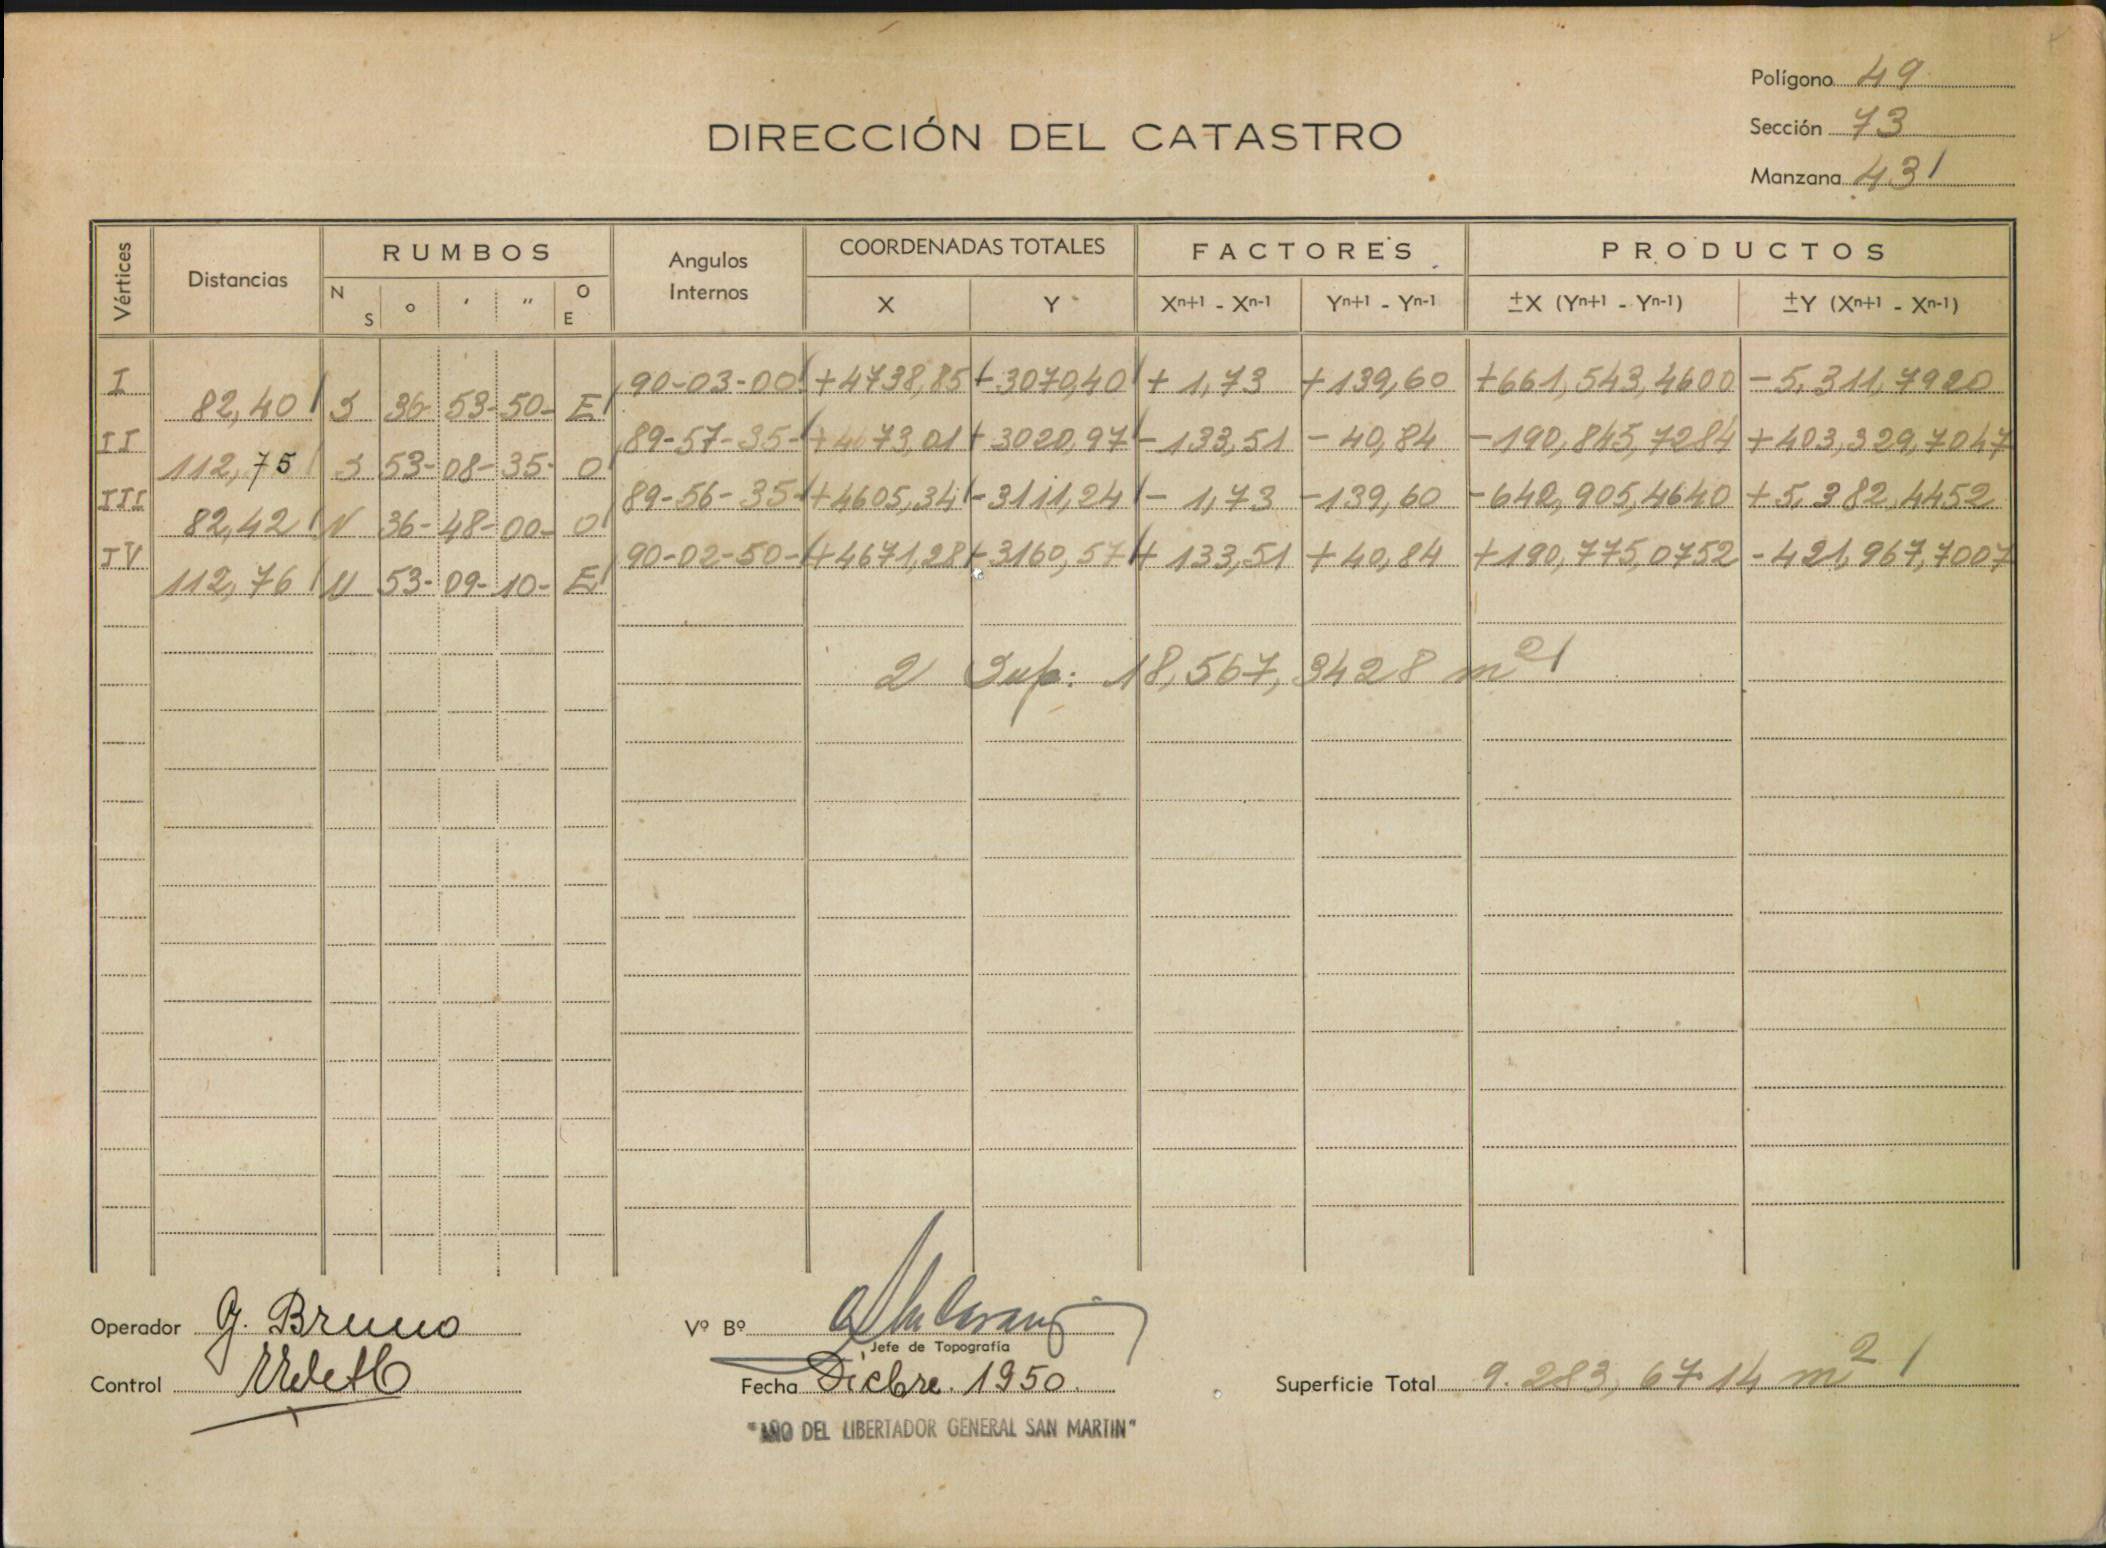 Polígono 49
Sección 73
Manzana 431
DIRECCIÓN DEL CATASTRO
Vértices Distancias RUMBOS Angulos Internos COORDENADAS TOTALES FACTORES PRODUCTOS
N S o ′ ″ O E X Y Xn+1 - Xn-1 Yn+1 - Yn-1 ±X (Yn+1 - Yn-1) ±Y (Xn+1 - Xn-1)
I 90-03-00 +4738,85 -3070,40 + 1,73 +139,60 +661,543,4600 -5,311,7920
82,40 S 36- 53- 50- E
II 89-57-35- +4673,01 -3020,97 -133,51 -40,84 -190,845,7284 +403,329,7047
112,75 S 53- 08- 35- O
III 89-56-35- +4605,34 -3111,24 - 1,73 -139,60 -642,905,4640 +5,382,4452
82,42 N 36- 48- 00- O
IV 90-02-50- +4671,28 -3160,57 +133,51 +40,84 +190,775,0752 -421,967,7007
112,76 N 53- 09- 10- E
2 Sup: 18,567,3428 m2
Operador G. Bruno
Vº Bº
Jefe de Topografía
Control
Fecha Dicbre. 1950.
Superficie Total 9.283,6714 m2
"AÑO DEL LIBERTADOR GENERAL SAN MARTIN"